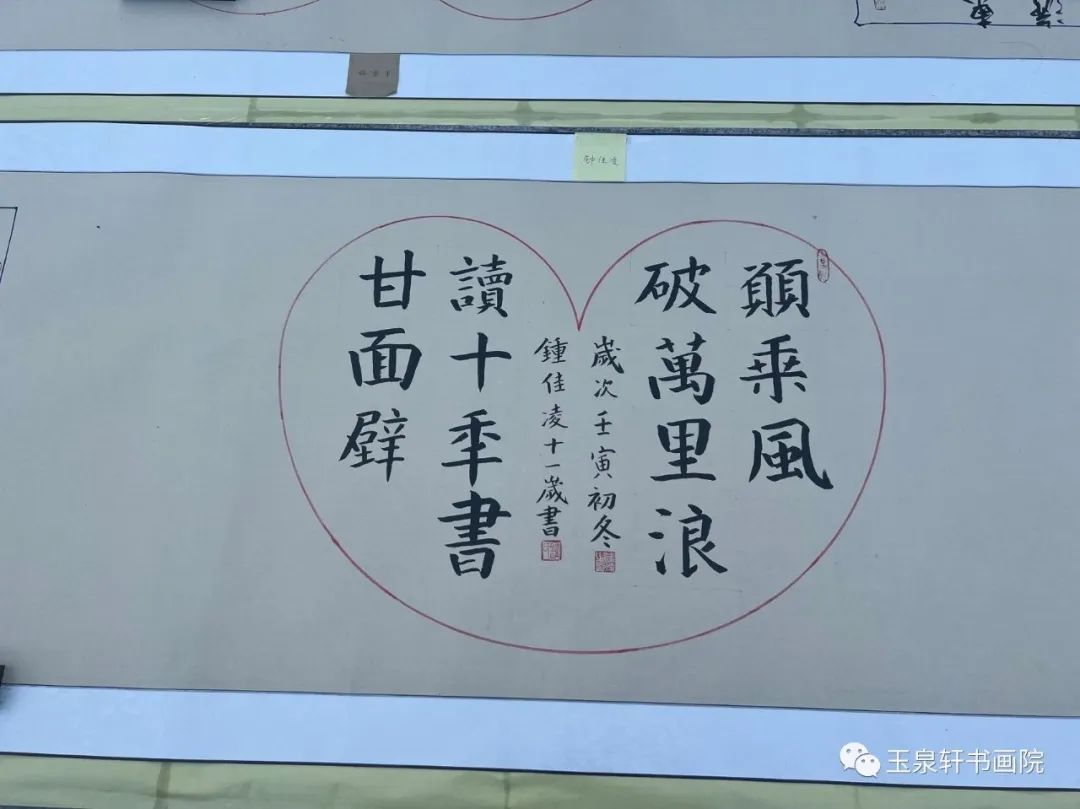 钟佳凌
願乘風
破萬里浪
甘面壁
讀十秊書
歲次壬寅初冬
鍾佳凌十一歲書
玉泉轩书画院